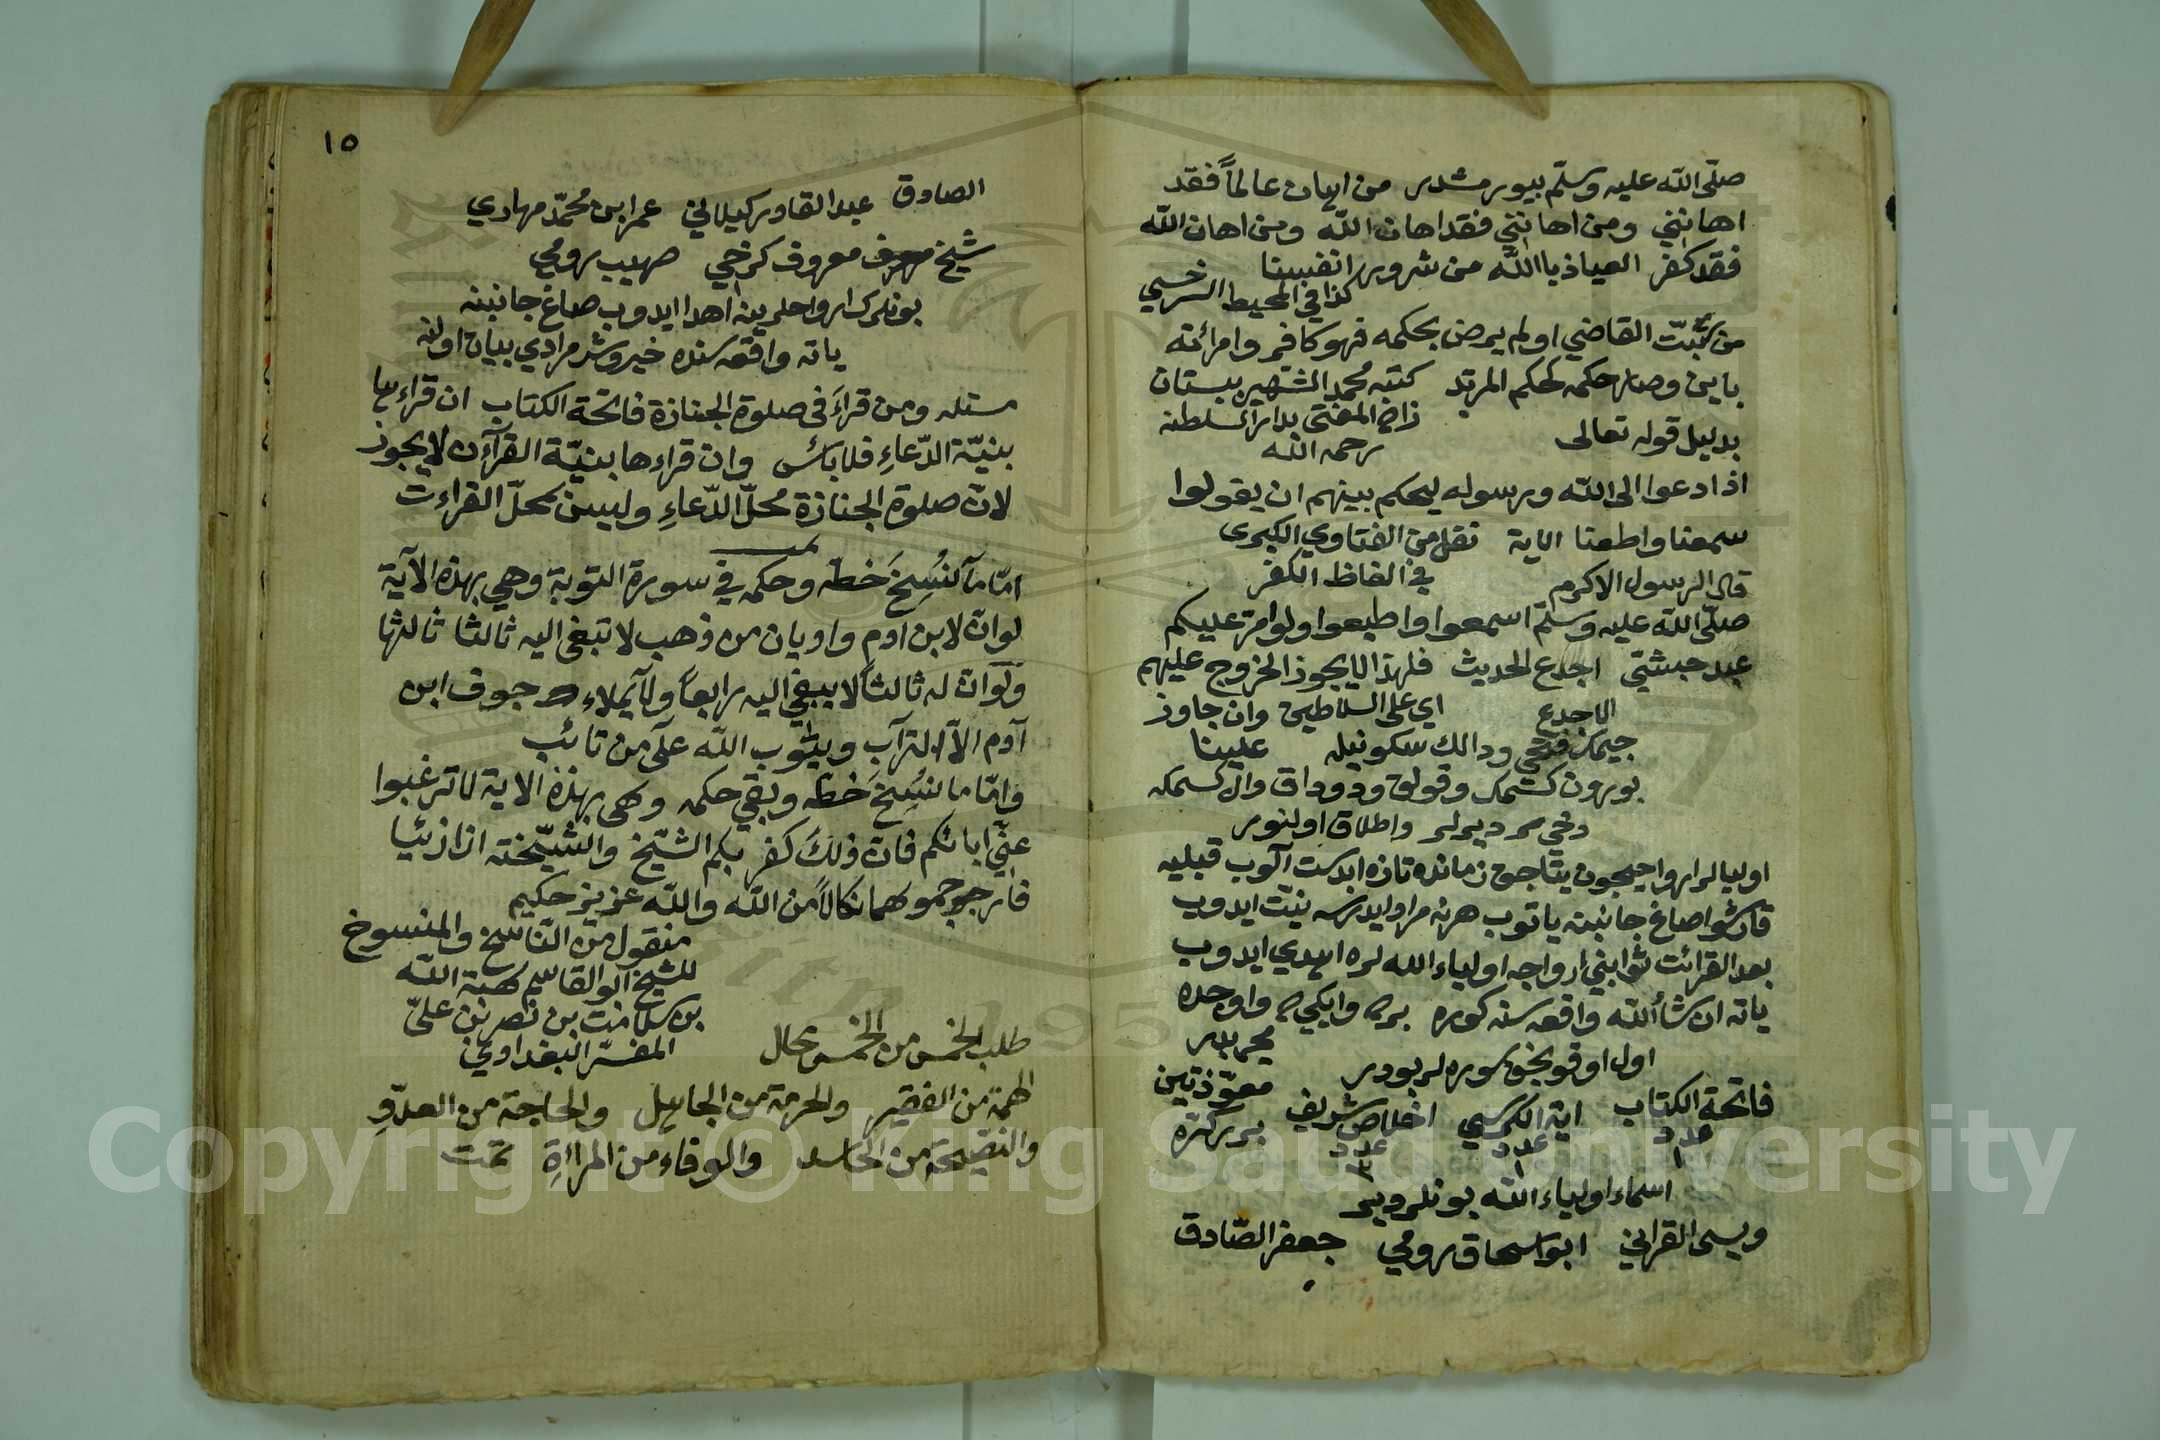 صلّى الله عليه وسلّم بيورمشدر من اهان عالماً فقد
اهاننى ومن اهاننى فقد اهان الله ومن اهان الله
فقد كفر العياذ بالله من شرور انفسنا
كذا في المحيط السرخسي
من سبّ القاضي او لم يرض بحكمه فهو كافر وامرائته
باين وصار حكمه كحكم المرتد كتبه محمد الشهير ببستان
زاده المفتى بدار السلطنه
رحمه الله
بدليل قوله تعالى
اذا دعوا الى الله ورسوله ليحكم بينهم ان يقولوا
سمعنا واطعنا الاية نقل من الفتاوي الكبرى
في الفاظ الكفر
قال الرسول الاكرم
صلّى الله عليه وسلّم اسمعوا واطيعوا ولو امّر عليكم
عبد حبشي اجدع الحديث فلهذا لا يجوز الخروج عليهم
اي على السلاطين وان جاوز
علينا
الاجدع
جيمك فتحي ودالك سكونيله
بورون كسمك وقولق ودوداق وال كسمكه
دخي دیرلر واطلاق اولنور
اوليالر ارواحيچون يتاجق زمانده تازه ابدست آلوب قبليه
قارشو اصاغ جانبنه ياتوب هر نه مراد ايدرسه نيّت ايدوب
بعد القرائت ثوابني ارواح اولياء الله لره اهدي ايدوب
ياته ان شاء الله واقعه سنده كوره بر وايكي واوچده
مجربدر
اول اوقونجق سوره لر بودر
فاتحة الكتاب اية الكرسي اخلاص شريف معوّذتين
عدد ١ عدد ١ عدد ٣ بر كره
اسماء اولياء الله بونلردير
ويسى القرانى ابو اسحاق رومي جعفر الصّادق
١٥
الصادق عبد القادر كيلاني عمر ابن محمّد مهادي
شيخ معروف كرخي صهيب رومي
بونلرك ارواحلرينه اهدا ايدوب صاغ جانبنه
ياته واقعه سنده خير وشر مرادي بيان اولنه
مسئله ومن قراءَ فى صلوة الجنازة فاتحة الكتاب ان قراءها
بنيّة الدّعاءِ فلا بائس وان قراءها بنيّة القرآن لا يجوز
لانّ صلوة الجنازة محلّ الدّعاءِ وليس محلّ القراءت
امّا مآ نُسِخَ خطّه وحكمه في سورة التوبة وهي بهذه الآية
لو انّ لابن ادم واديان من ذهب لا تبغى اليه ثالثا
ولو انّ له ثالثاً لا يبغي اليه رابعاً ولا يملاء جوف ابن
آدم الاّ التراب ويتوب الله على من تائب
وامّا ما نُسِخَ خطّه وبقي حكمه وهى بهذه الاية لا ترغبوا
عنّي ابائكم فان ذلك كفر بكم الشيخ والشيخة اذا زنيا
فارجموهما نكالاً من الله والله عزيز حكيم
منقول من النّاسخ والمنسوخ
للشيخ ابو القاسم هبة الله
بن سلامت بن نصر بن علىّ
المفسّر البغدادي
طلب الخمس من الخمس محال
الهمّة من الفقير والحرمة من الجاهل والحاجة من العدوِّ
والنّصيحة من الحاسد والوفاء من المراةِ تمّت
Copyright © King Saud University